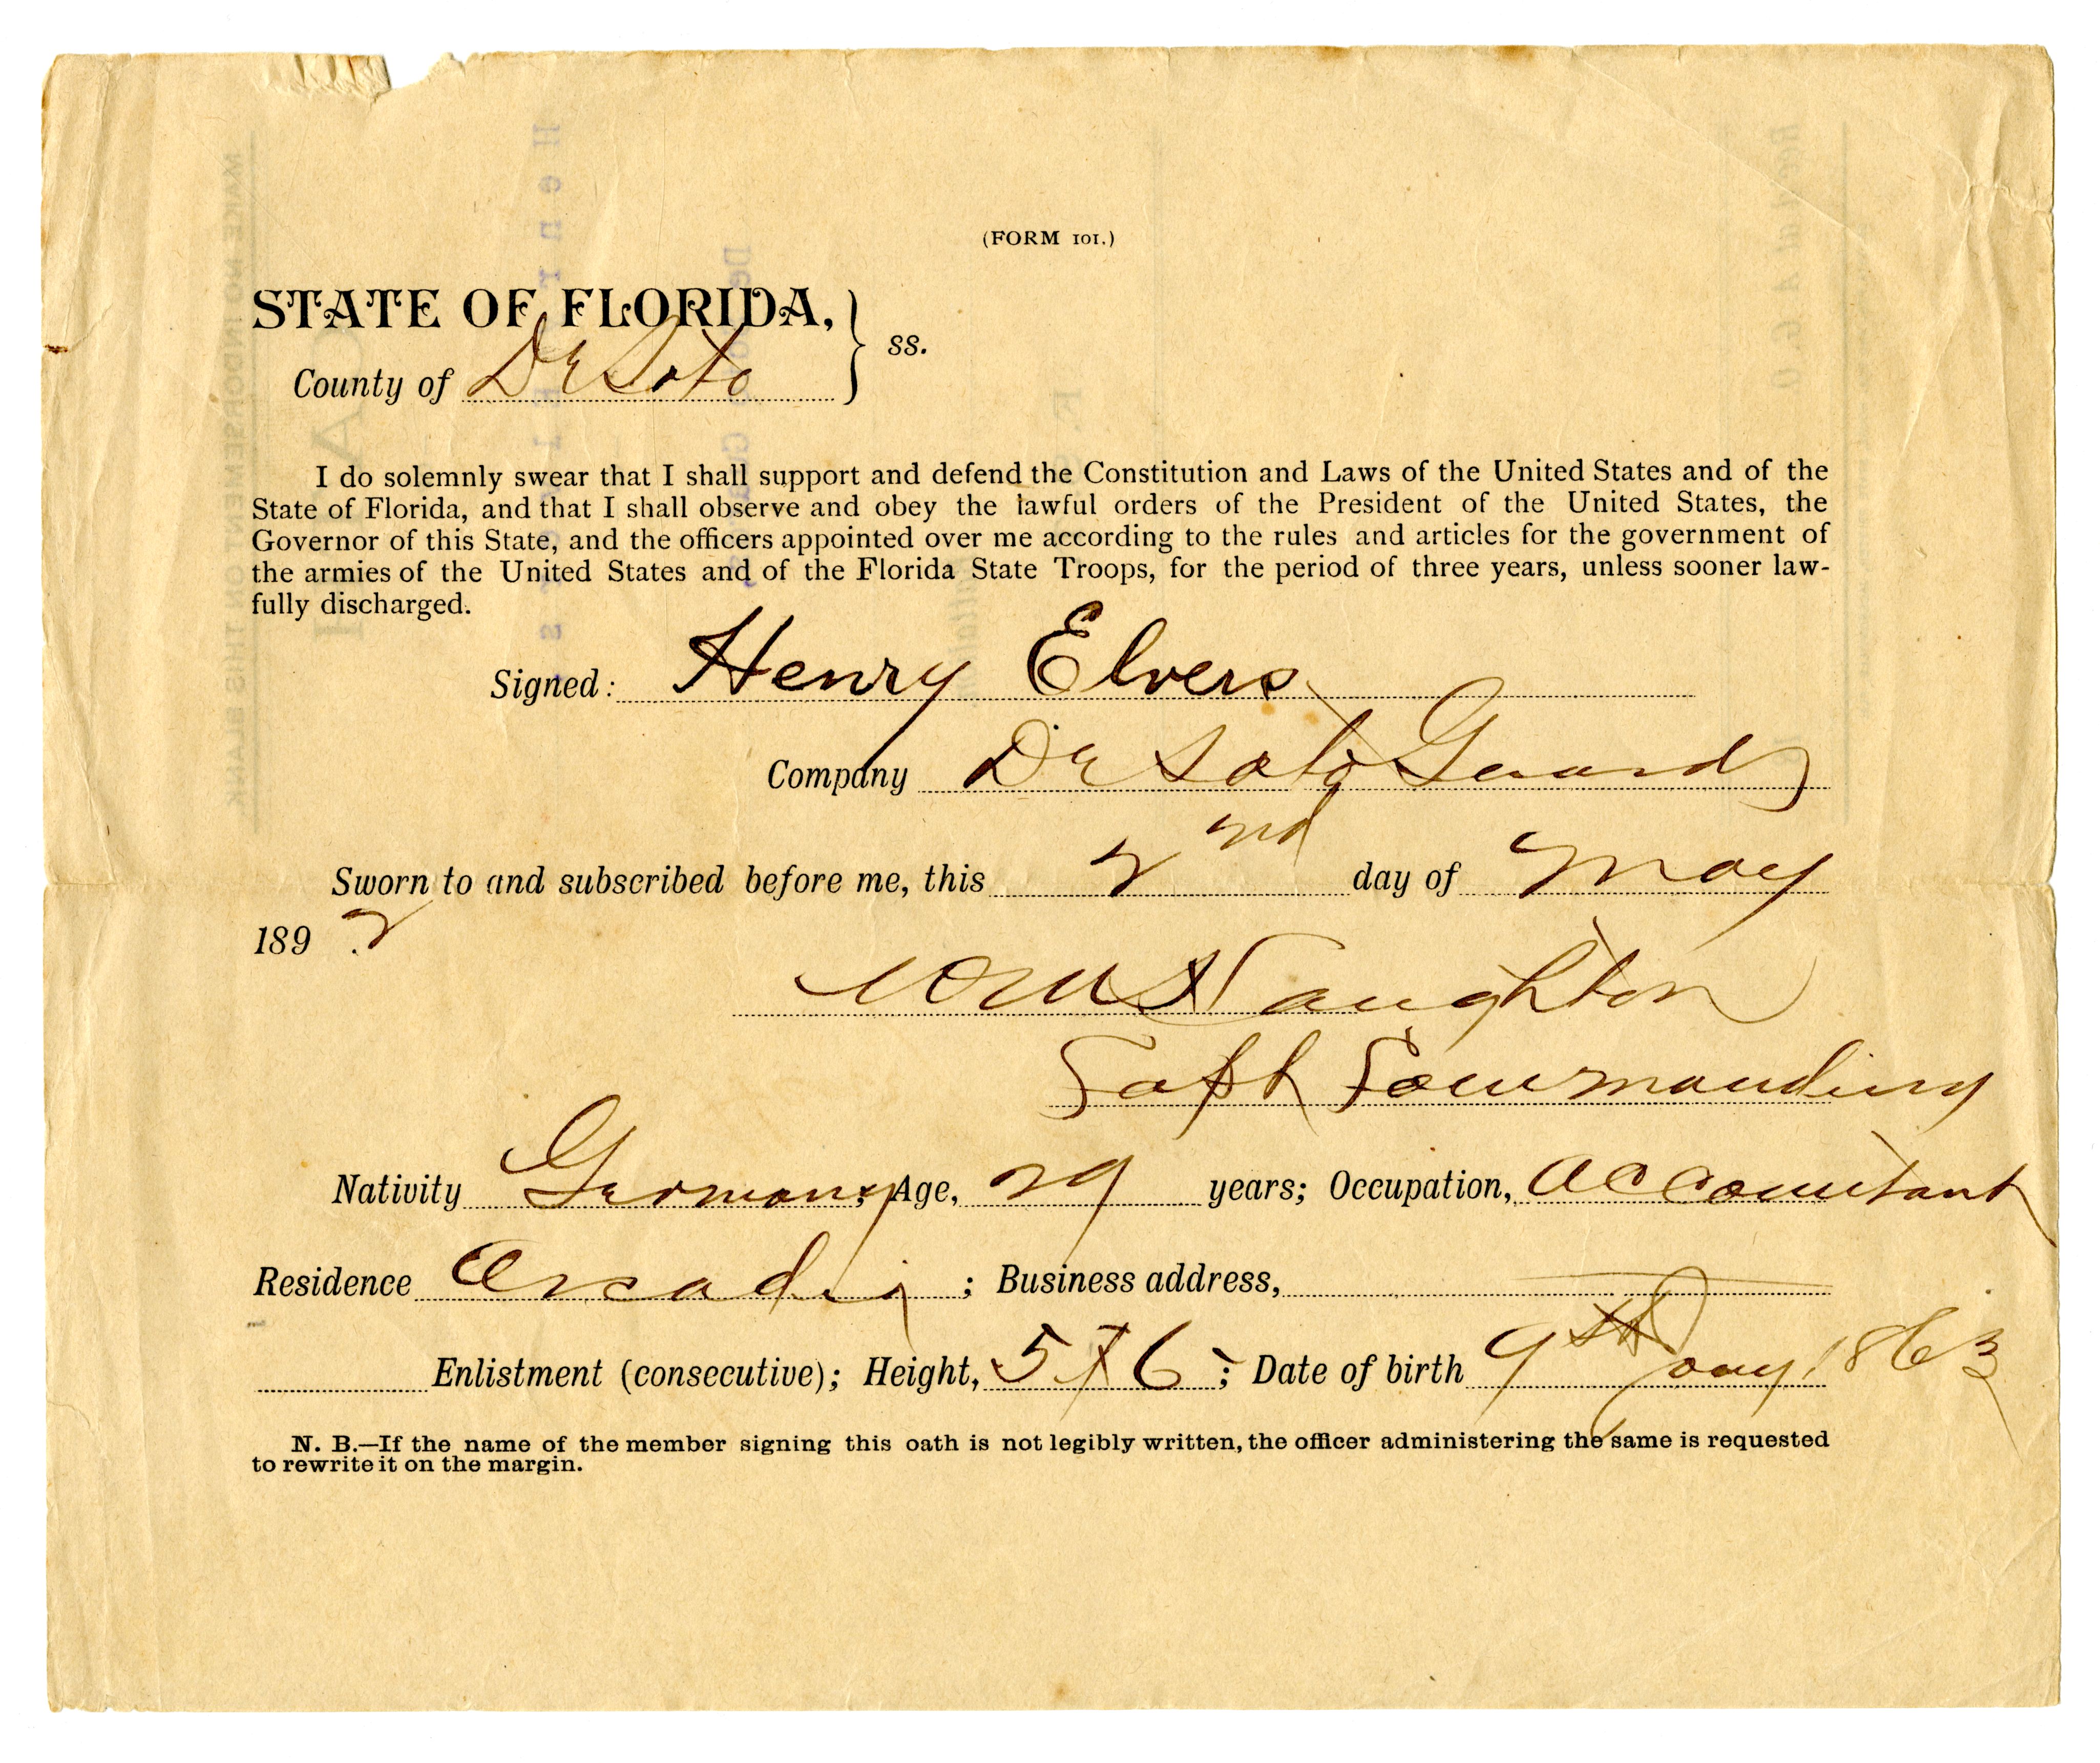 (FORM 101.)
STATE OF FLORIDA,
County of De Soto } ss.
I do solemnly swear that I shall support and defend the Constitution and Laws of the United States and of the
State of Florida, and that I shall observe and obey the lawful orders of the President of the United States, the
Governor of this State, and the officers appointed over me according to the rules and articles for the government of
the armies of the United States and of the Florida State Troops, for the period of three years, unless sooner law-
fully discharged.
Signed: Henry Elvers
Company De Soto Guards
Sworn to and subscribed before me, this 2nd day of May
189 2
Capt Commanding
Nativity Germany; Age, 29 years; Occupation, Accountant
Residence Arcadia; Business address,
Enlistment (consecutive); Height, 5 f 6; Date of birth 9th Jany 1863
N. B.—If the name of the member signing this oath is not legibly written, the officer administering the same is requested
to rewrite it on the margin.